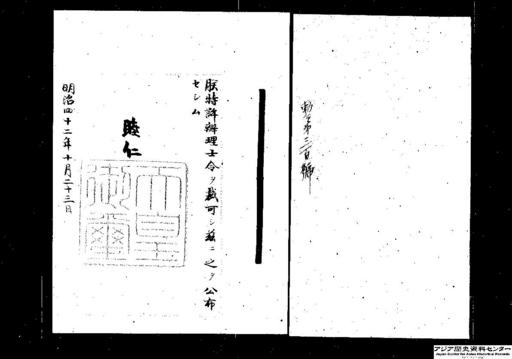 勅令第三百號
朕特許辨理士令ヲ裁可シ茲ニ之ヲ公布
セシム
睦仁
天皇
御璽
明治四十二年十月二十三日
アジア歴史資料センター
Japan Center for Asian Historical Records